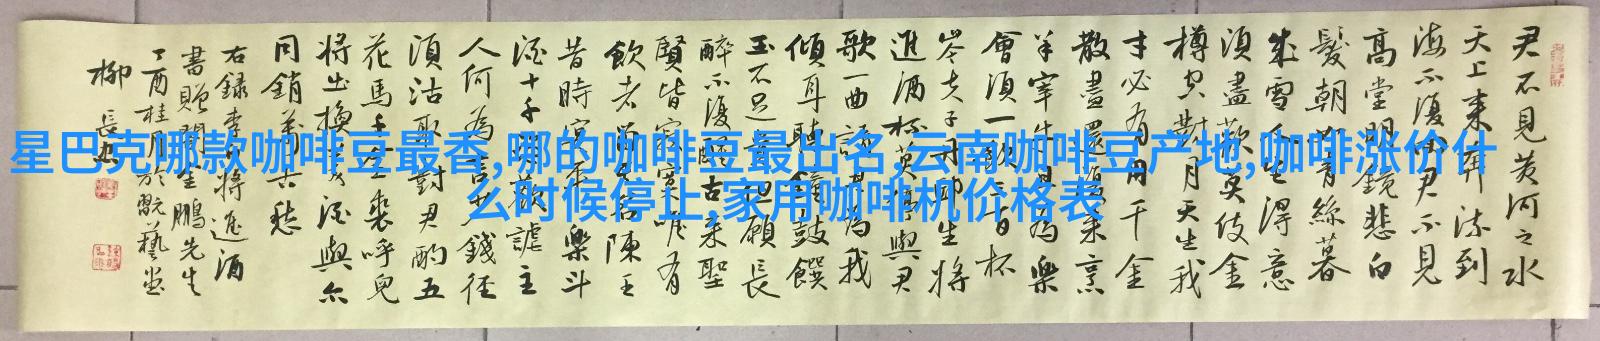 星巴克哪款咖啡豆最香,哪的咖啡豆最出名,云南咖啡豆产地,咖啡涨价什
么时候停止,家用咖啡机价格表
君不見黃河之水
天上來奔流到
海不復回君不見
高堂明鏡悲白
髮朝如青絲暮
成雪人生得意
須盡歡莫使金
樽空對月天生我
才必有用千金
散盡還復來烹
羊宰牛且為樂
會須一飲三百杯
岑夫子丹邱生將
進酒杯莫停與君
歌一曲請君為我
傾耳聽鐘鼓饌
玉不足貴但願長
醉不復醒古來聖
賢皆寂寞唯有
飲者留其名陳王
昔時宴平樂斗
酒十千恣歡謔主
人何為言少錢徑
須沽取對君酌五
花馬千金裘呼兒
將出換美酒與尔
同銷萬古愁
右錄李白將進酒
書贈生鵬先生
丁酉桂月於翫藝堂
柳長忠